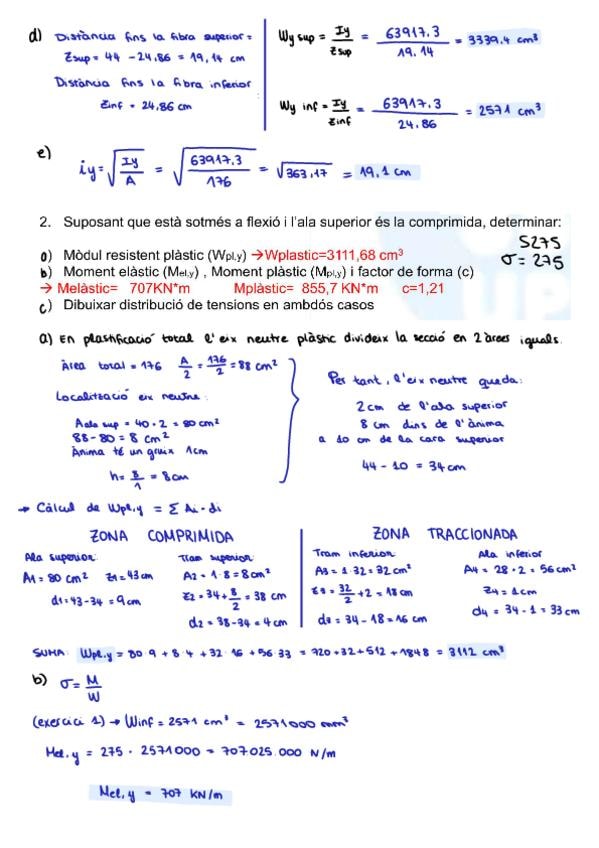 d) Distància fins la fibra superior =
Zsup = 44 - 24,86 = 19,14 cm
Distància fins la fibra inferior
Zinf = 24,86 cm
Wy sup = Iy / Zsup = 63917.3 / 19.14 = 3339.4 cm³
Wy inf = Iy / Zinf = 63917.3 / 24.86 = 2571 cm³
e) iy = √(Iy / A) = √(63917.3 / 176) = √363,17 = 19,1 cm
2. Suposant que està sotmés a flexió i l'ala superior és la comprimida, determinar:
S275
σ = 275
a) Mòdul resistent plàstic (Wpl,y) →Wplastic=3111,68 cm³
b) Moment elàstic (Mel,y) , Moment plàstic (Mpl,y) i factor de forma (c)
→ Melàstic= 707KN*m Mplàstic= 855,7 KN*m c=1,21
c) Dibuixar distribució de tensions en ambdós casos
a) En plastificació total l'eix neutre plàstic divideix la secció en 2 àrees iguals.
Àrea total = 176 A/2 = 176/2 = 88 cm²
Localització eix neutre:
Aala sup = 40 · 2 = 80 cm²
88 - 80 = 8 cm²
Ànima té un gruix 1cm
h = 8/1 = 8cm
Per tant, l'eix neutre queda:
2cm de l'ala superior
8 cm dins de l'ànima
a 10 cm de la cara superior
44 - 10 = 34cm
→ Càlcul de Wpl,y = Σ Ai · di
ZONA COMPRIMIDA
Ala superior:
A1 = 80 cm² Z1 = 43cm
d1 = 43 - 34 = 9cm
Tram superior:
A2 = 1 · 8 = 8cm²
Z2 = 34 + 8/2 = 38 cm
d2 = 38 - 34 = 4cm
ZONA TRACCIONADA
Tram inferior:
A3 = 1 · 32 = 32cm²
Z3 = 32/2 + 2 = 18cm
d3 = 34 - 18 = 16 cm
Ala inferior
A4 = 28 · 2 = 56cm²
Z4 = 1cm
d4 = 34 - 1 = 33 cm
SUMA: Wpl,y = 80 · 9 + 8 · 4 + 32 · 16 + 56 · 33 = 720 + 32 + 512 + 1848 = 3112 cm³
b) σ = M / W
(exercici 1) → Winf = 2571 cm³ = 2571000 mm³
Mel,y = 275 · 2571000 = 707025.000 N/m
Mel,y = 707 KN/m